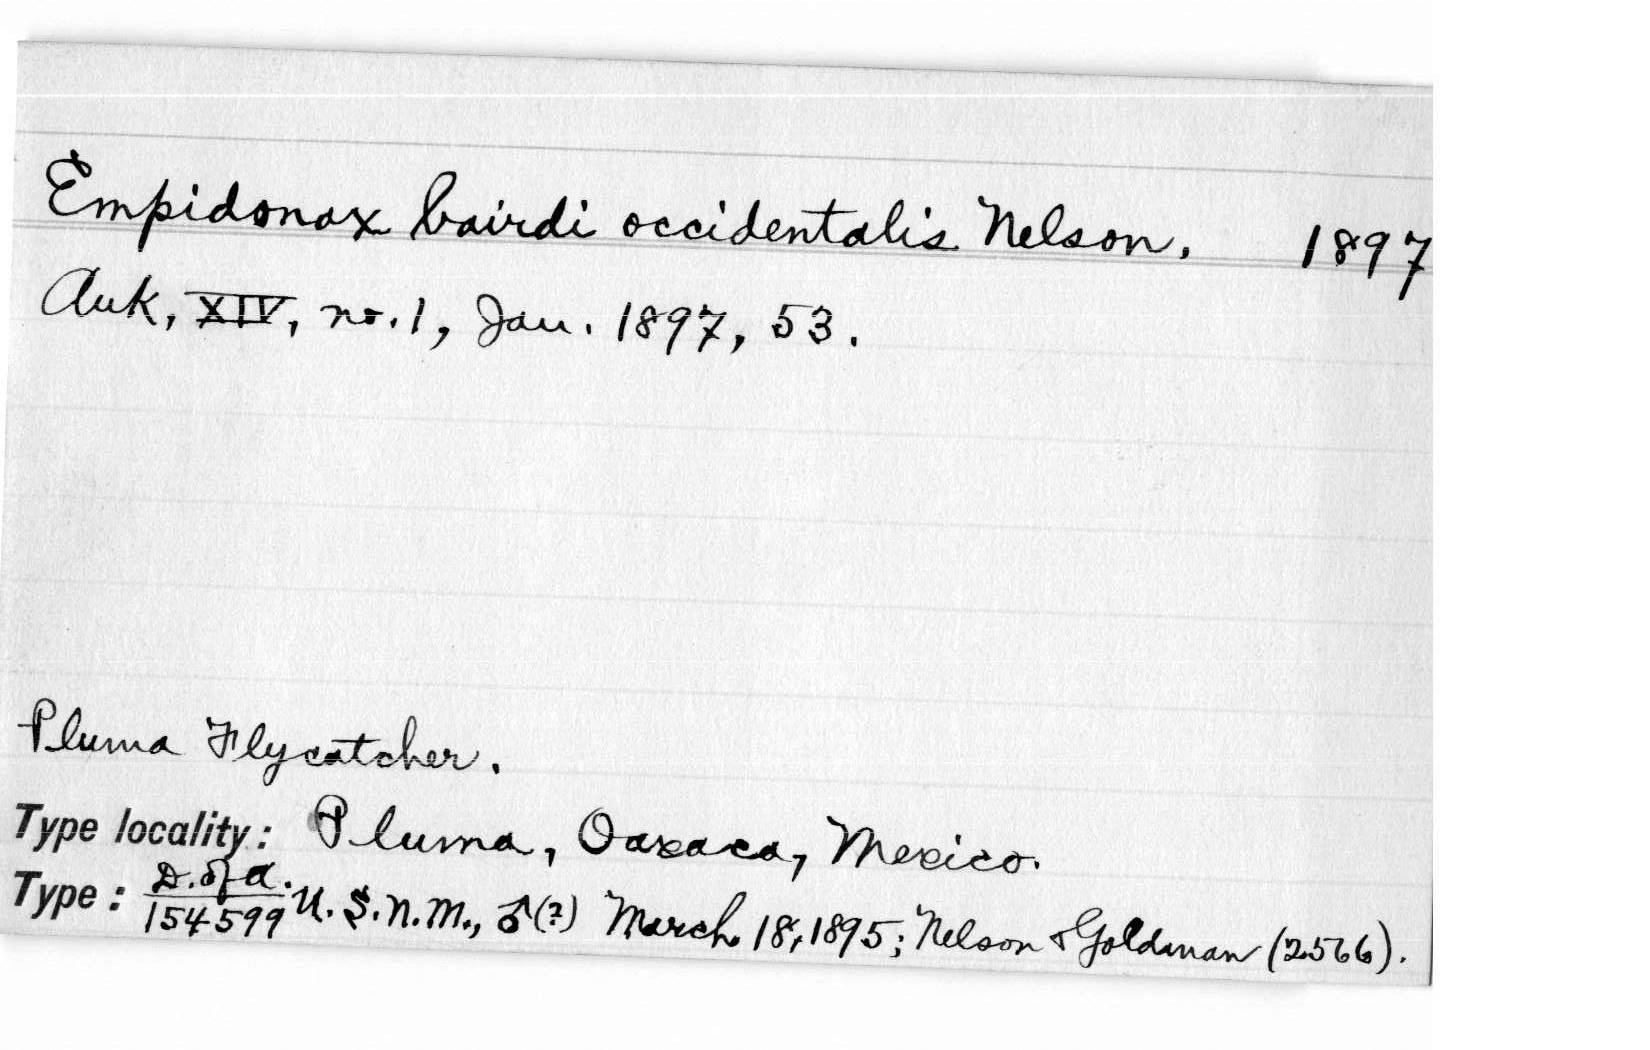 Empidonax bairdi occidentalis Nelson. 1897
Auk, XIV, no. 1, Jan. 1897, 53.
Pluma Flycatcher.
Type locality: Pluma, Oaxaca, Mexico.
Type: D. of A. 154599 U. S. N. M., ♂(?) March 18, 1895; Nelson & Goldman (2566).